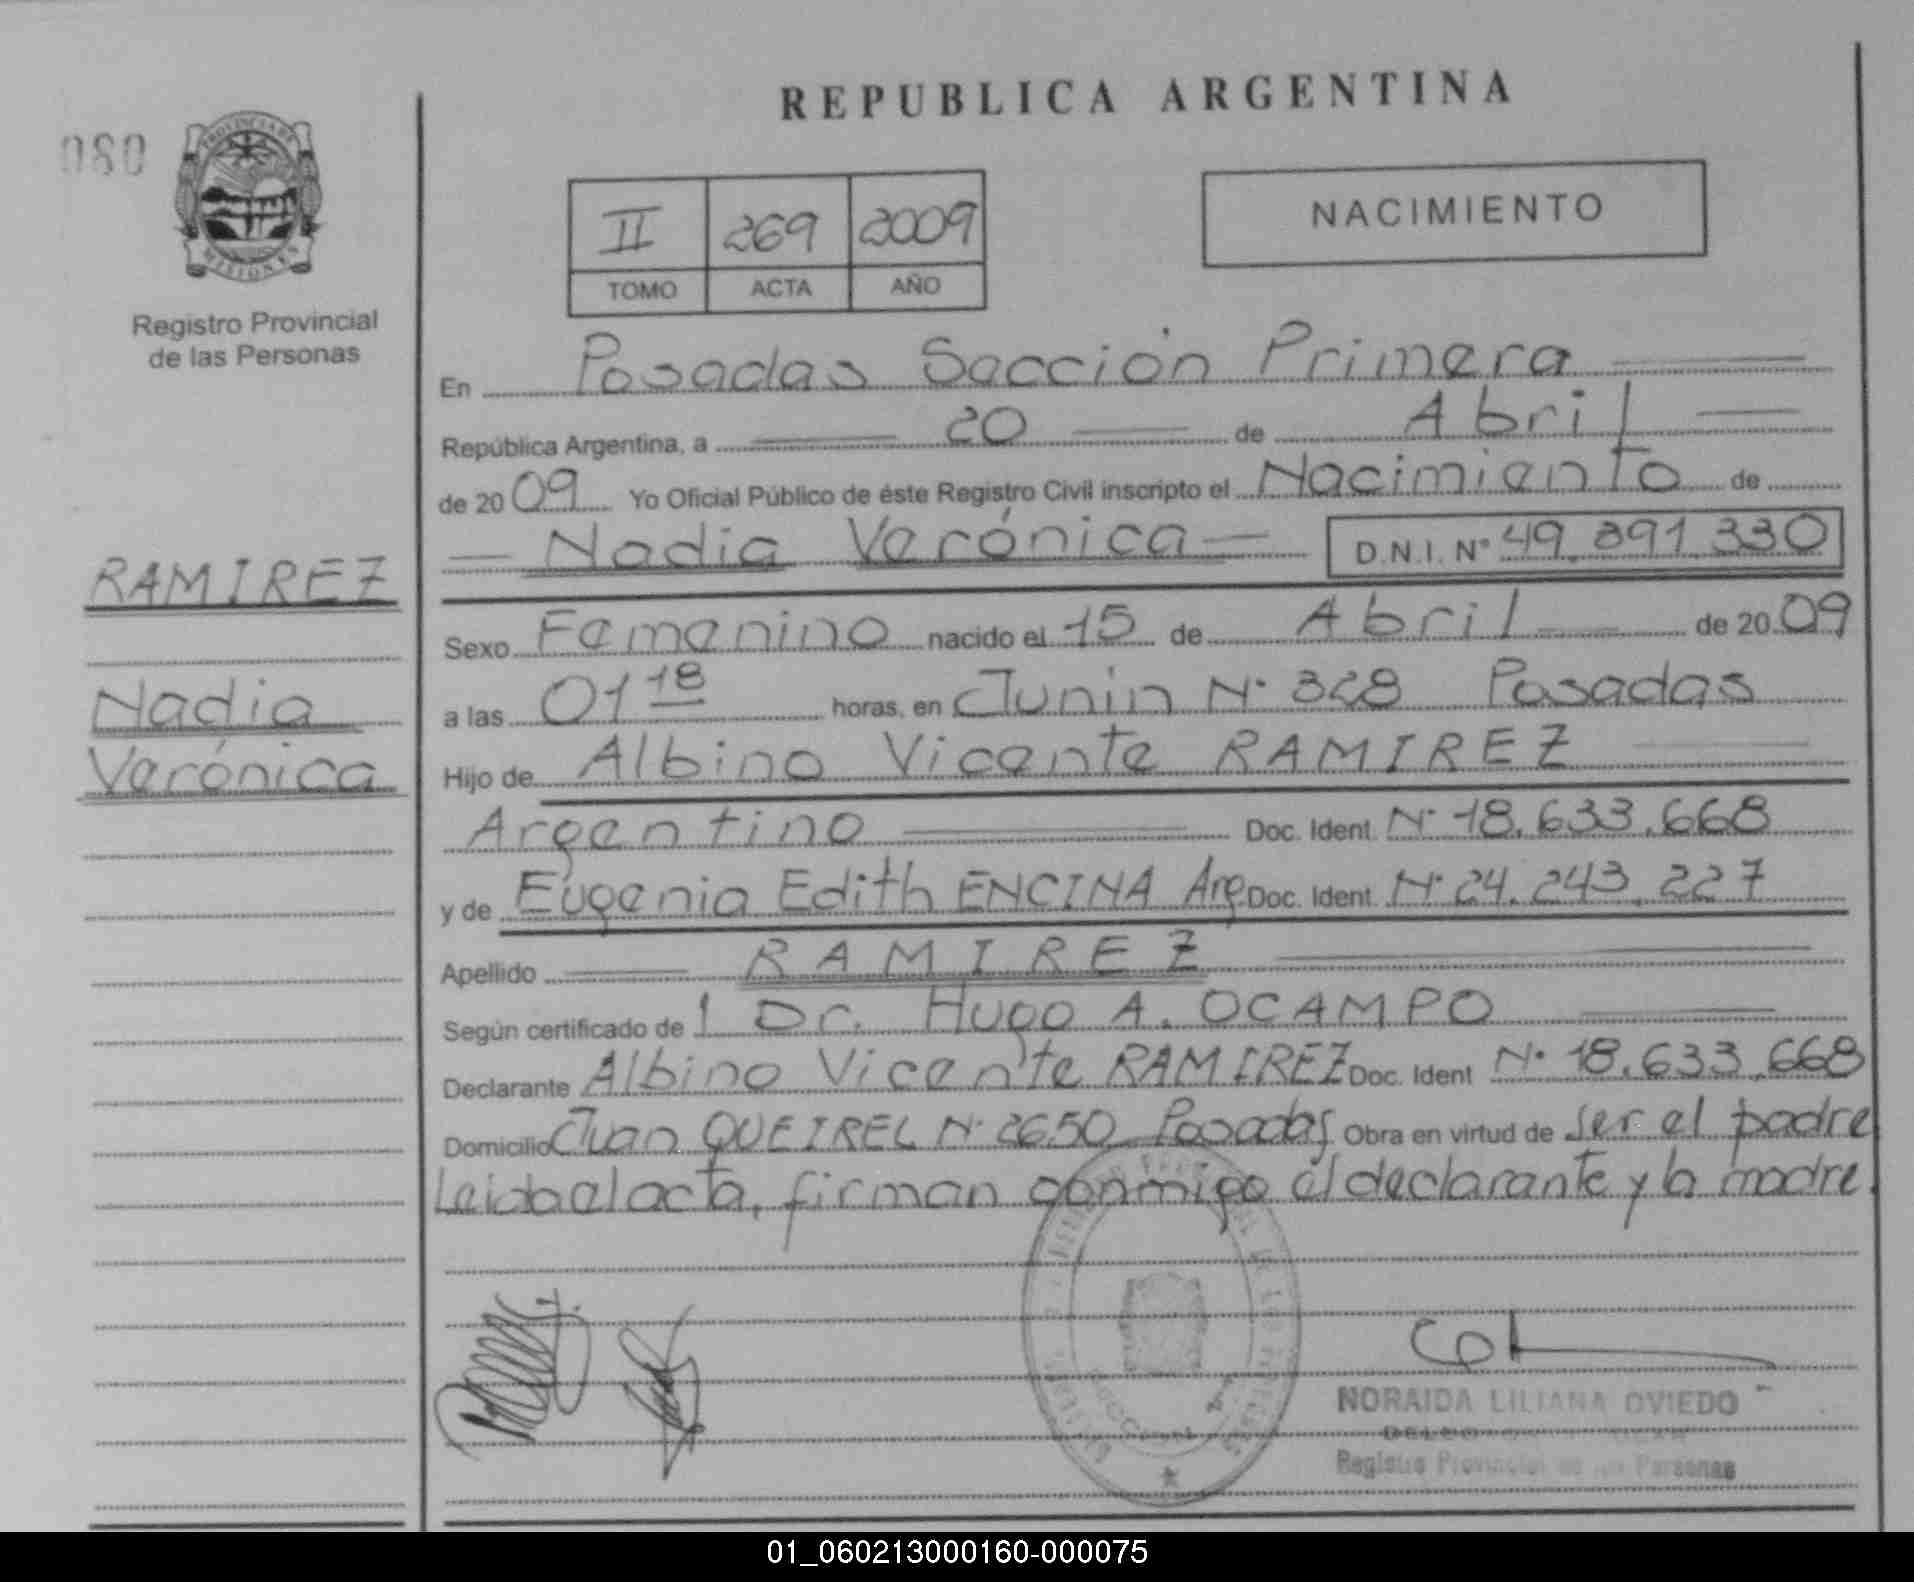 REPUBLICA ARGENTINA
080
PROVINCIA DE
MISIONES
Registro Provincial
de las Personas
II 269 2009
TOMO ACTA AÑO
NACIMIENTO
En Posadas Sección Primera
República Argentina, a 20 de Abril
de 2009 Yo Oficial Público de éste Registro Civil inscripto el Nacimiento de
Nadia Verónica D.N.I. Nº 49.391.330
RAMIREZ
Nadia
Verónica
Sexo Femenino nacido el 15 de Abril de 2009
a las 01 18 horas, en Junin Nº 328 Posadas
Hijo de Albino Vicente RAMIREZ
Argentino Doc. Ident. Nº 18.633.668
y de Eugenia Edith ENCINA Arg Doc. Ident. Nº 24.243.227
Apellido RAMIREZ
Según certificado de l Dr. Hugo A. OCAMPO
Declarante Albino Vicente RAMIREZ Doc. Ident Nº 18.633.668
Domicilio Juan QUEIREL Nº 2650 Posadas Obra en virtud de ser el padre
Leida el acta, firman conmigo el declarante y la madre.
NORAIDA LILIANA OVIEDO
Registro Provincial de las Personas
01_060213000160-000075